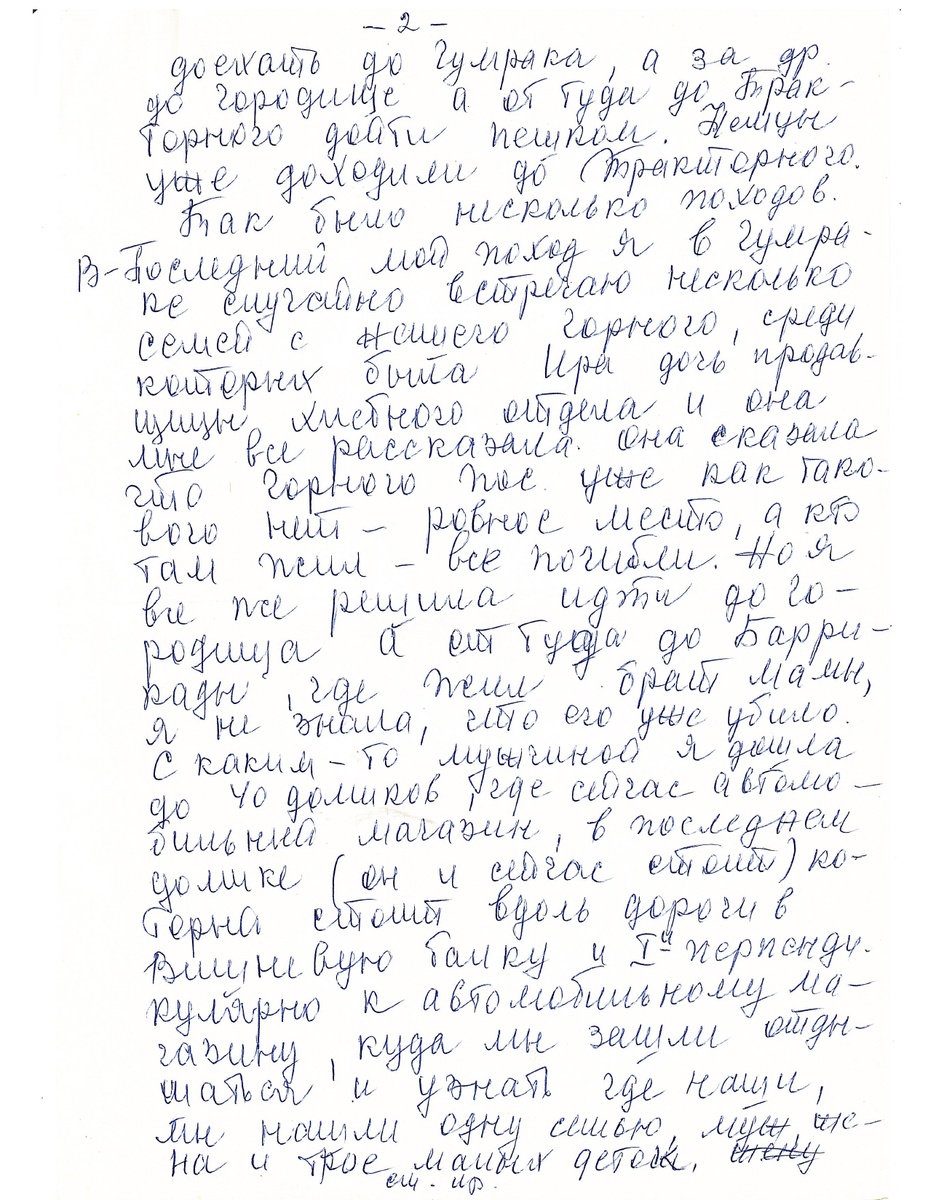 – 2 –
доехать до Гумрака, а за др.
до городище а от туда до Трак-
торного дойти пешком. Немцы
уже доходили до Тракторного.
Так было несколько походов.
В-Последний мой поход я в Гумра-
ке случайно встречаю несколько
семей с нашего Горного, среди
которых была Ира дочь продав-
щицы хлебного отдела и она
мне все рассказала. Она сказала
что Горного пос. уже как тако-
вого нет – ровное место, а кто
там жил – все погибли. Но я
все же решила идти до го-
родища а от туда до Барри-
кады, где жил брат мамы,
я не знала, что его уже убило.
С каким-то мужчиной я дошла
до 40 домиков, где сейчас автомо-
бильный магазин, в последнем
домике (он и сейчас стоит) ко-
торый стоит вдоль дороги в
Вишневую балку и I-й перпенди-
кулярно к автомобильному ма-
газину, куда мы зашли отды-
шаться и узнать где наши,
мы нашли одну семью, муж, же-
на и трое малых деток. жену
см. пр.